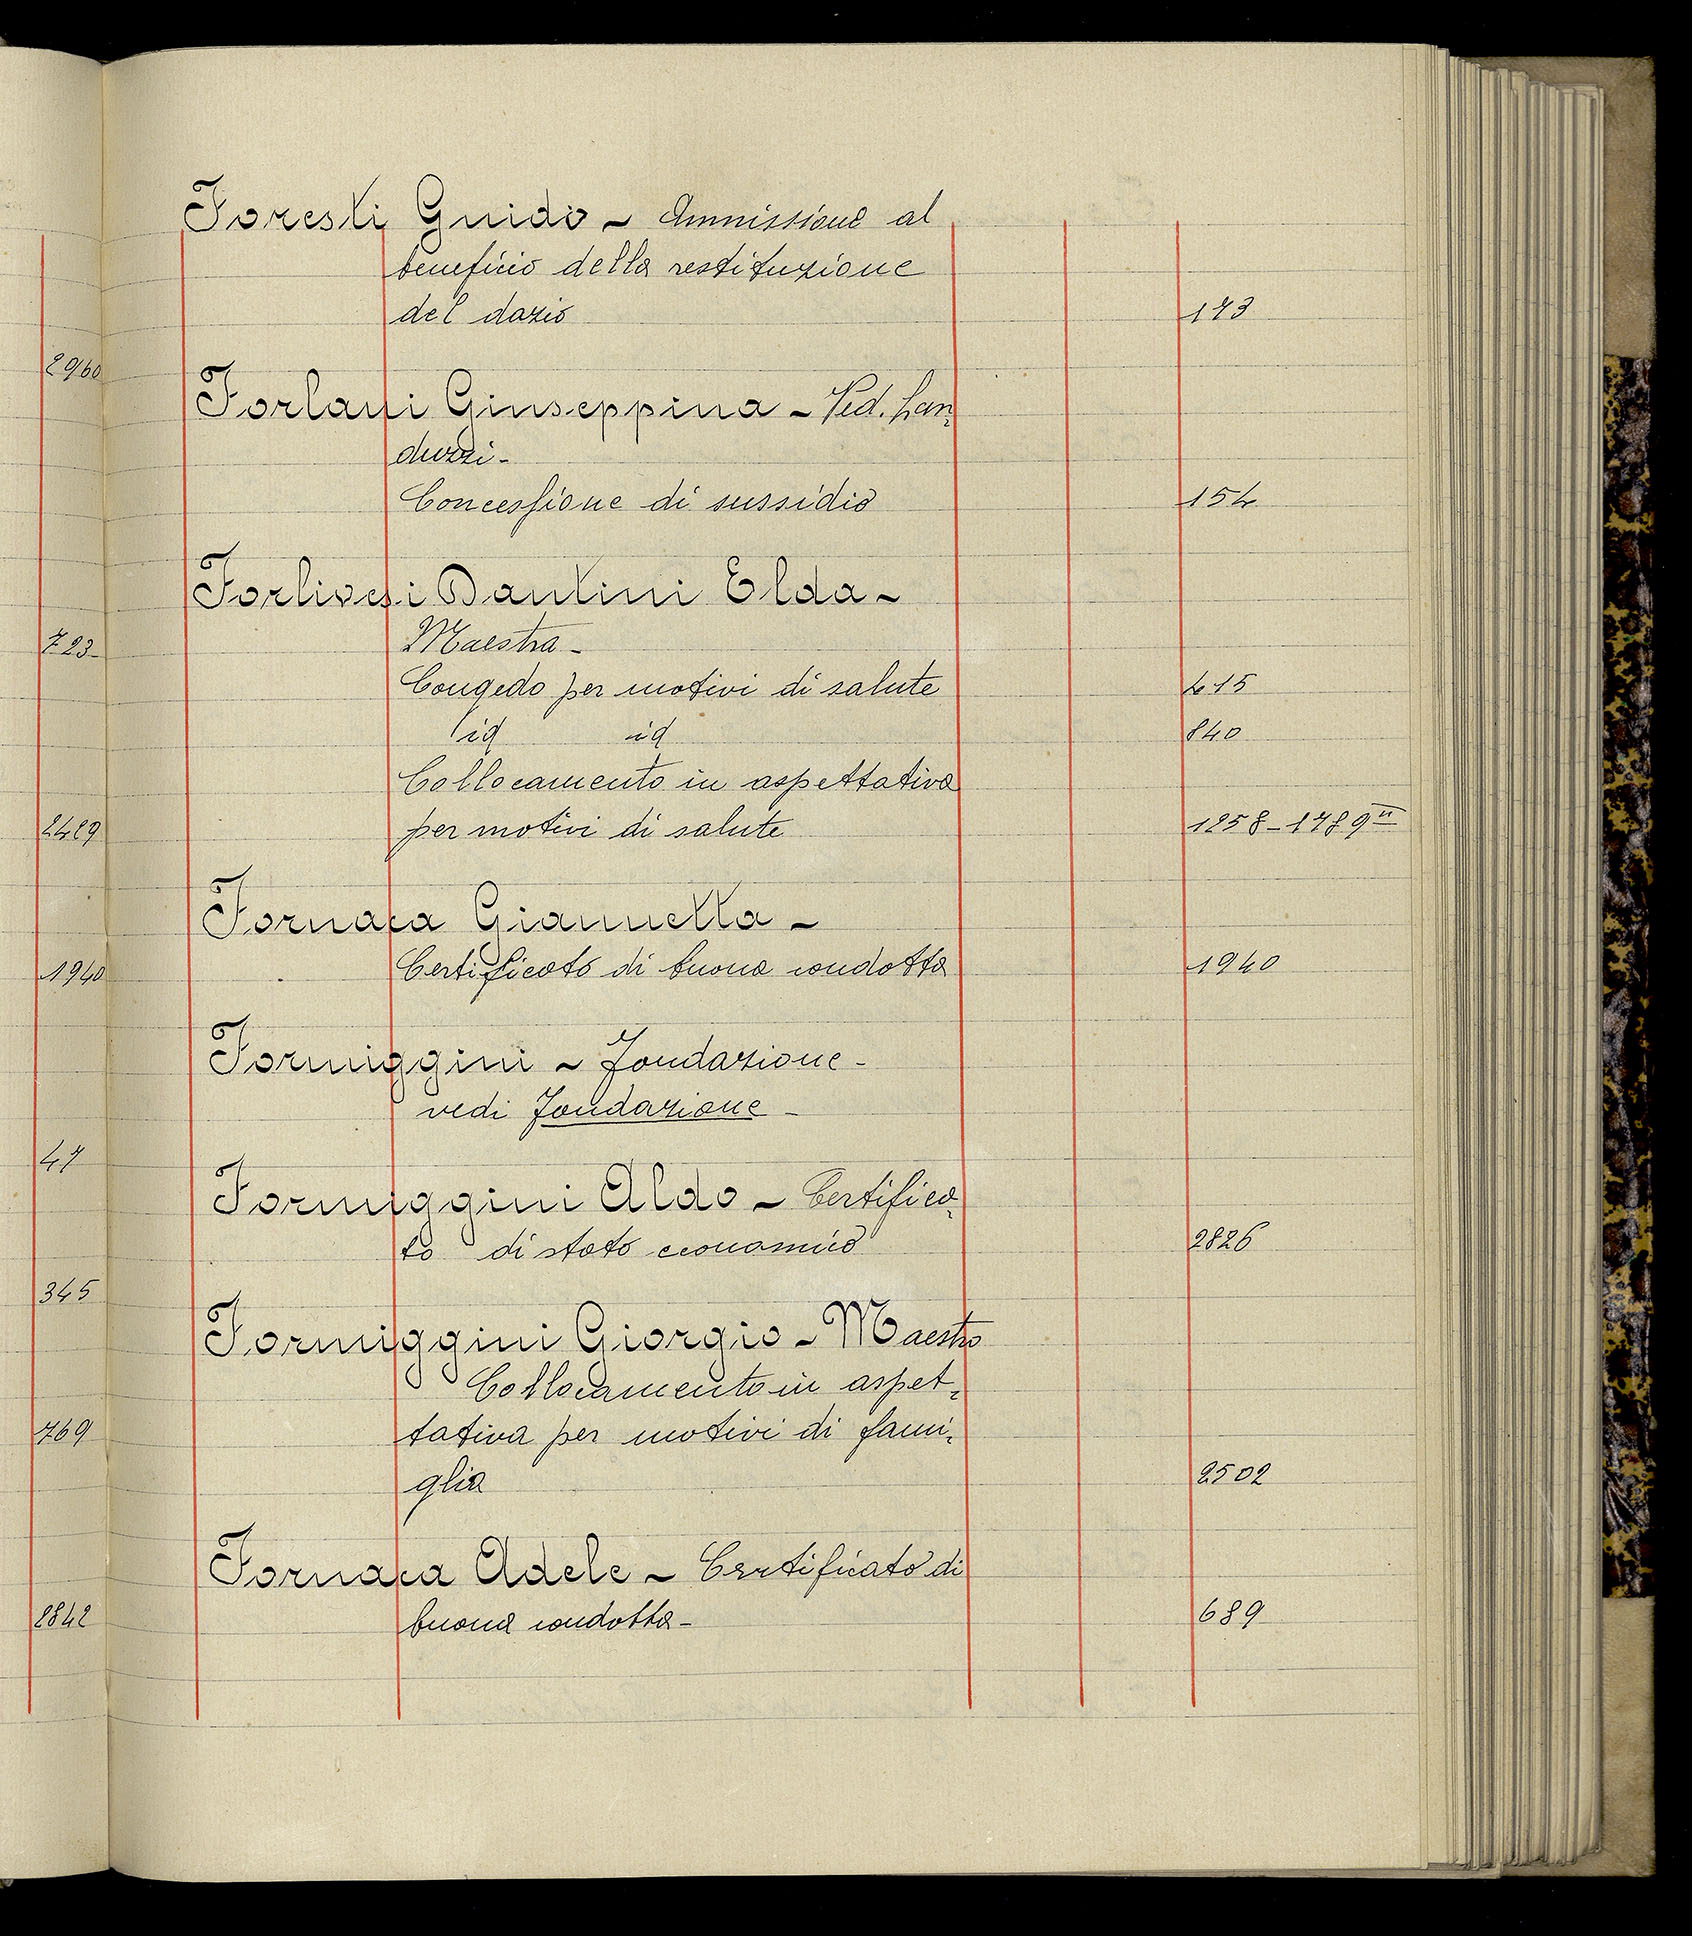 Foresti Guido - Ammissione al
beneficio della restituzione
del dazio 173
2960
Forlani Giuseppina - Ved. Lan=
duzzi -
Concessione di sussidio 154
Forlivesi Dantini Elda -
723 Maestra -
Congedo per motivi di salute 415
id id 840
Collocamento in aspettativa
2489 per motivi di salute 1258 - 1789 II
Fornaca Giannetta -
1940 Certificato di buona condotta 1940
Formiggini - Fondazione -
vedi Fondazione -
47
Formiggini Aldo - Certifica=
to di stato economico 2826
345
Formiggini Giorgio - Maestro
Collocamento in aspet=
769 tativa per motivi di fami=
glia 2502
Fornaca Adele - Certificato di
2842 buona condotta - 689